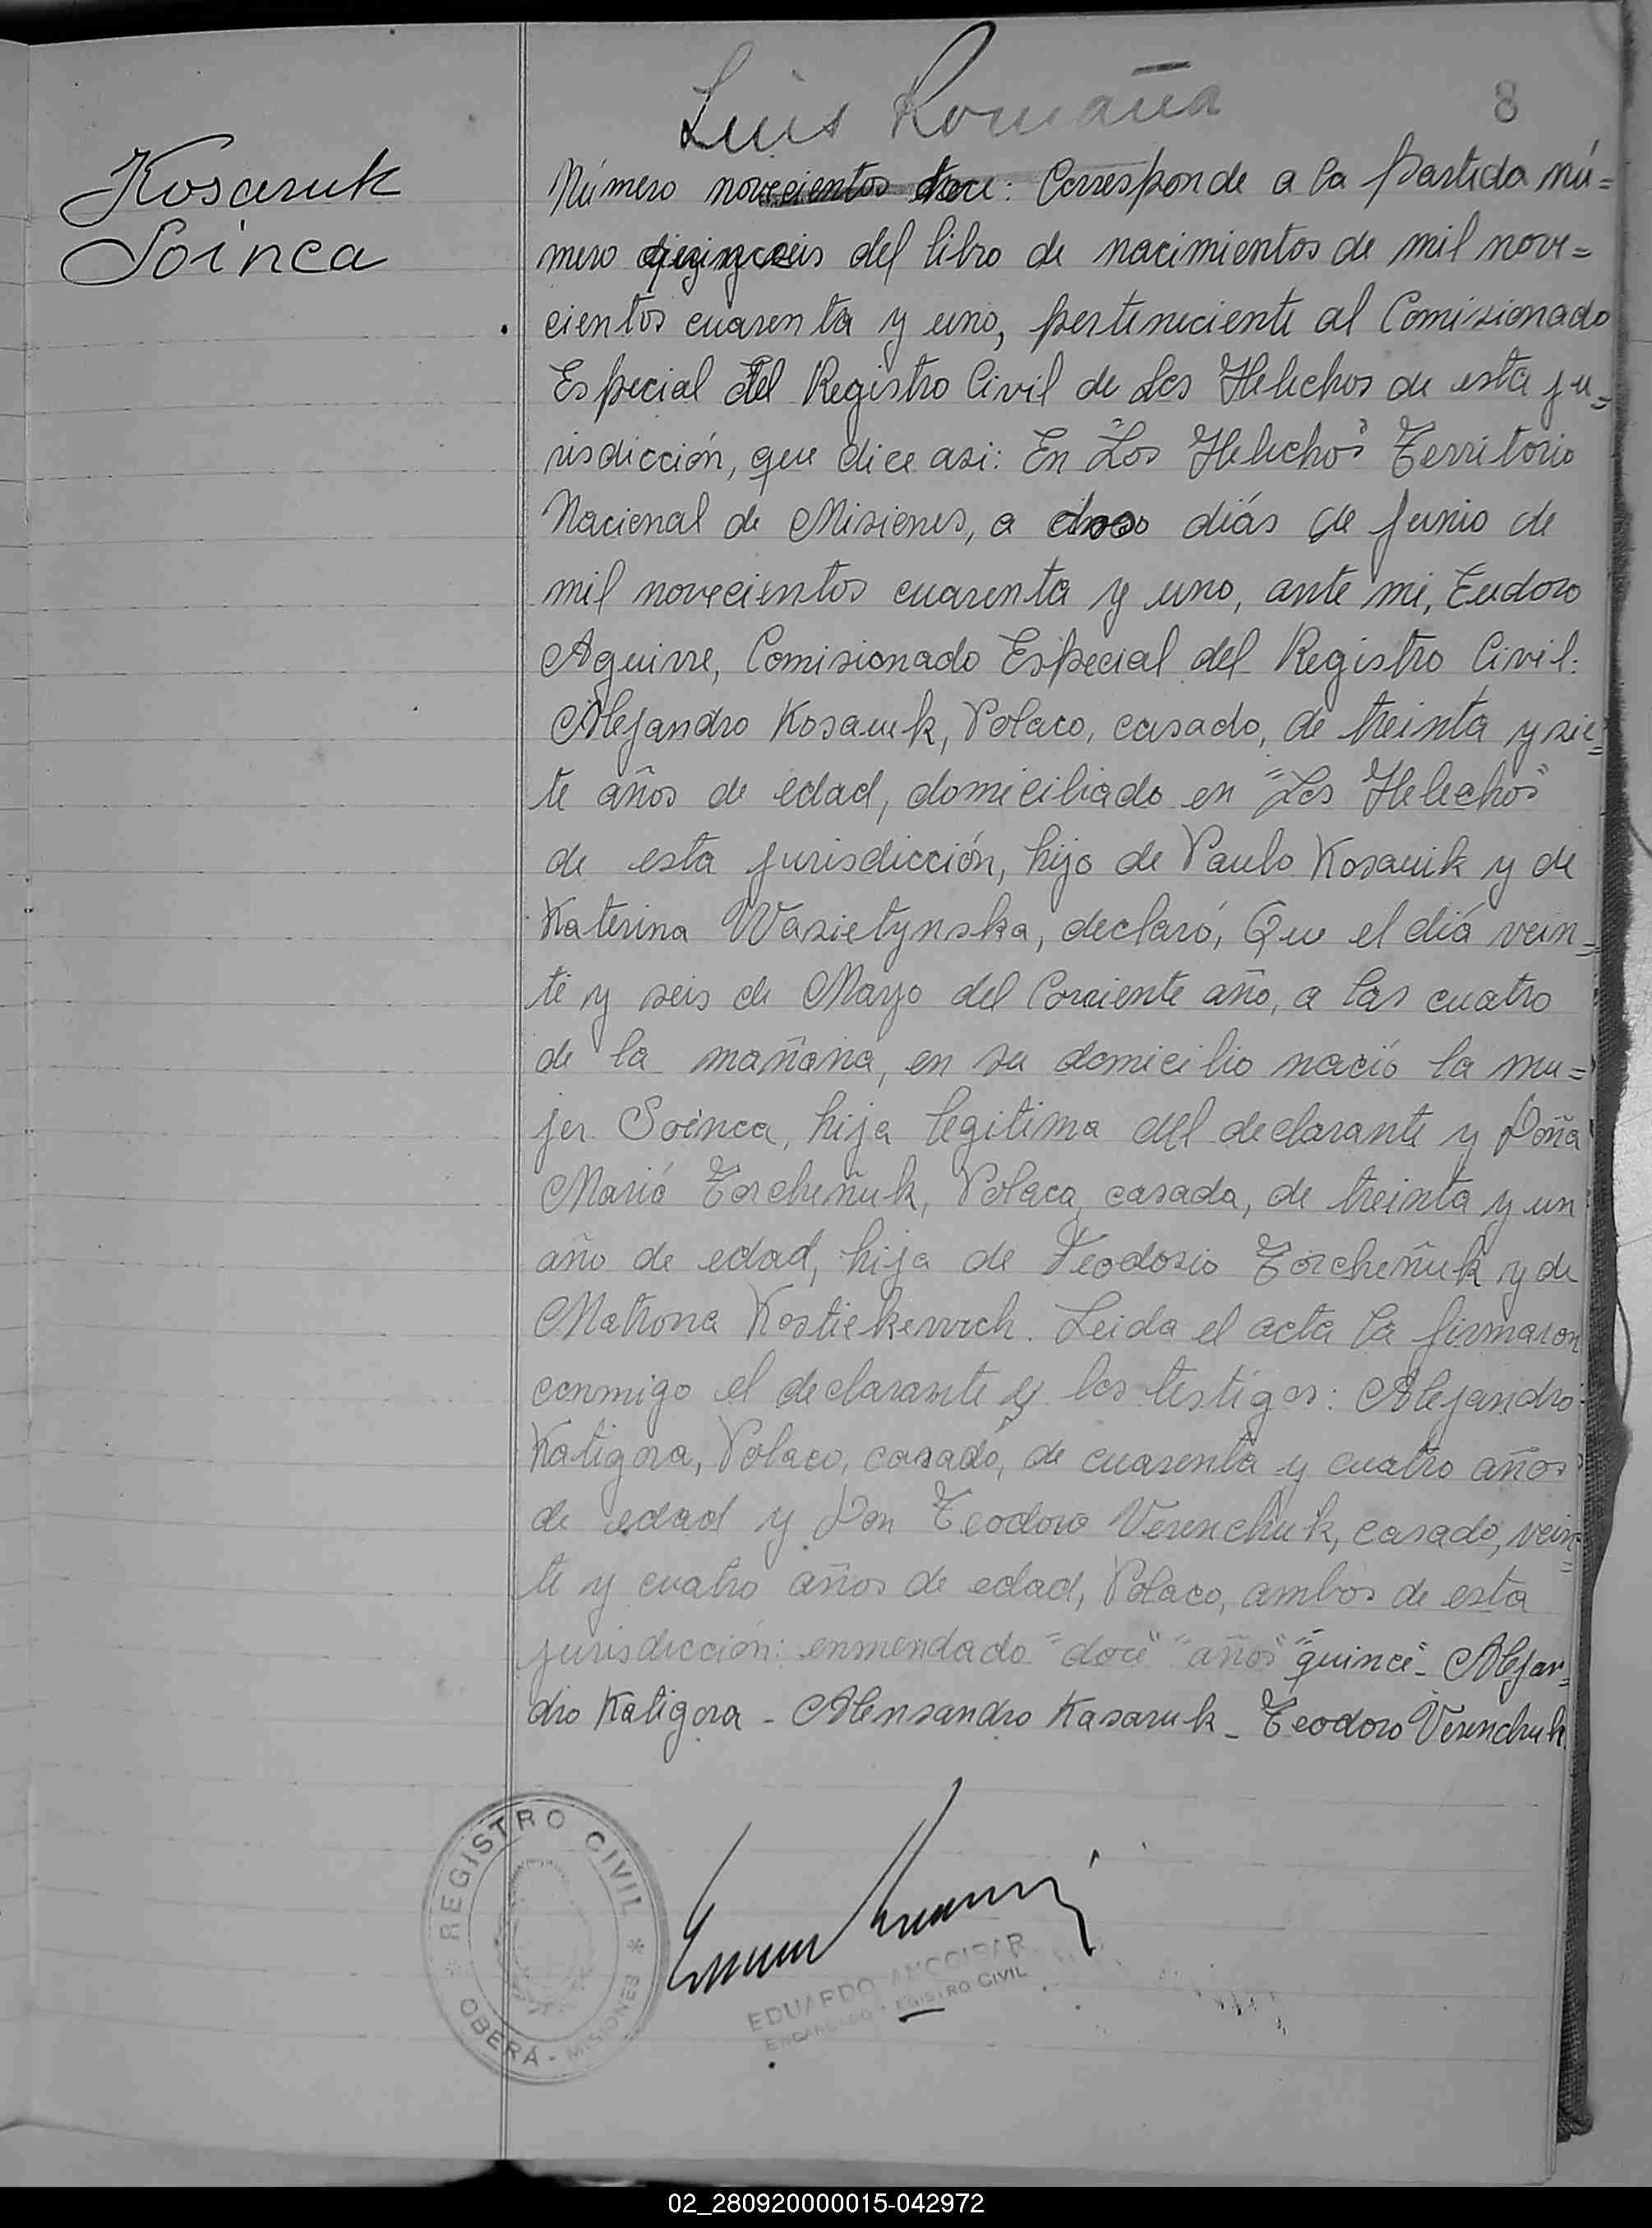 Luis Romaña
8
Kosaruk
Soinca
Número novecientos doce: Corresponde a la partida nú=
mero del libro de nacimientos de mil nove=
cientos cuarenta y uno, perteneciente al Comisionado
Especial del Registro Civil de Los Helechos de esta ju=
risdicción, que dice asi: En "Los Helechos" Territorio
Nacional de Misiones, a doce diás de Junio de
mil novecientos cuarenta y uno, ante mi, Eudoro
Aguirre, Comisionado Especial del Registro Civil:
Alejandro Kosauk, Polaco, casado, de treinta y sie=
te años de edad, domiciliado en "Los Helechos"
de esta jurisdicción, hijo de Paulo Kosauik y de
Katerina Wasietynska, declaró, Que el diá vein=
te y seis de Mayo del Corriente año, a las cuatro
de la mañana, en su domicilio nació la mu=
jer Soinca, hija legitima del declarante y Doña
Mariá Torcheñuk, Polaca, casada, de treinta y un
año de edad, hija de Teodosio Torcheñuk y de
Matrona Kostiekewich. Leida el acta la firmaron
conmigo el declarante y los testigos: Alejandro
Katigora, Polaco, casado, de cuarenta y cuatro años
de edad y Don Teodoro Verenchuk, casado, vein=
te y cuatro años de edad, Polaco, ambos de esta
jurisdicción: enmendado "doce" "años" "quince"- Alejan=
dro Katigora - Alensandro Kasaruk - Teodoro Verenchuk.
REGISTRO CIVIL
OBERÁ - MISIONES
EDUARDO ANCOIBAR
ENCARGADO REGISTRO CIVIL
02_280920000015-042972